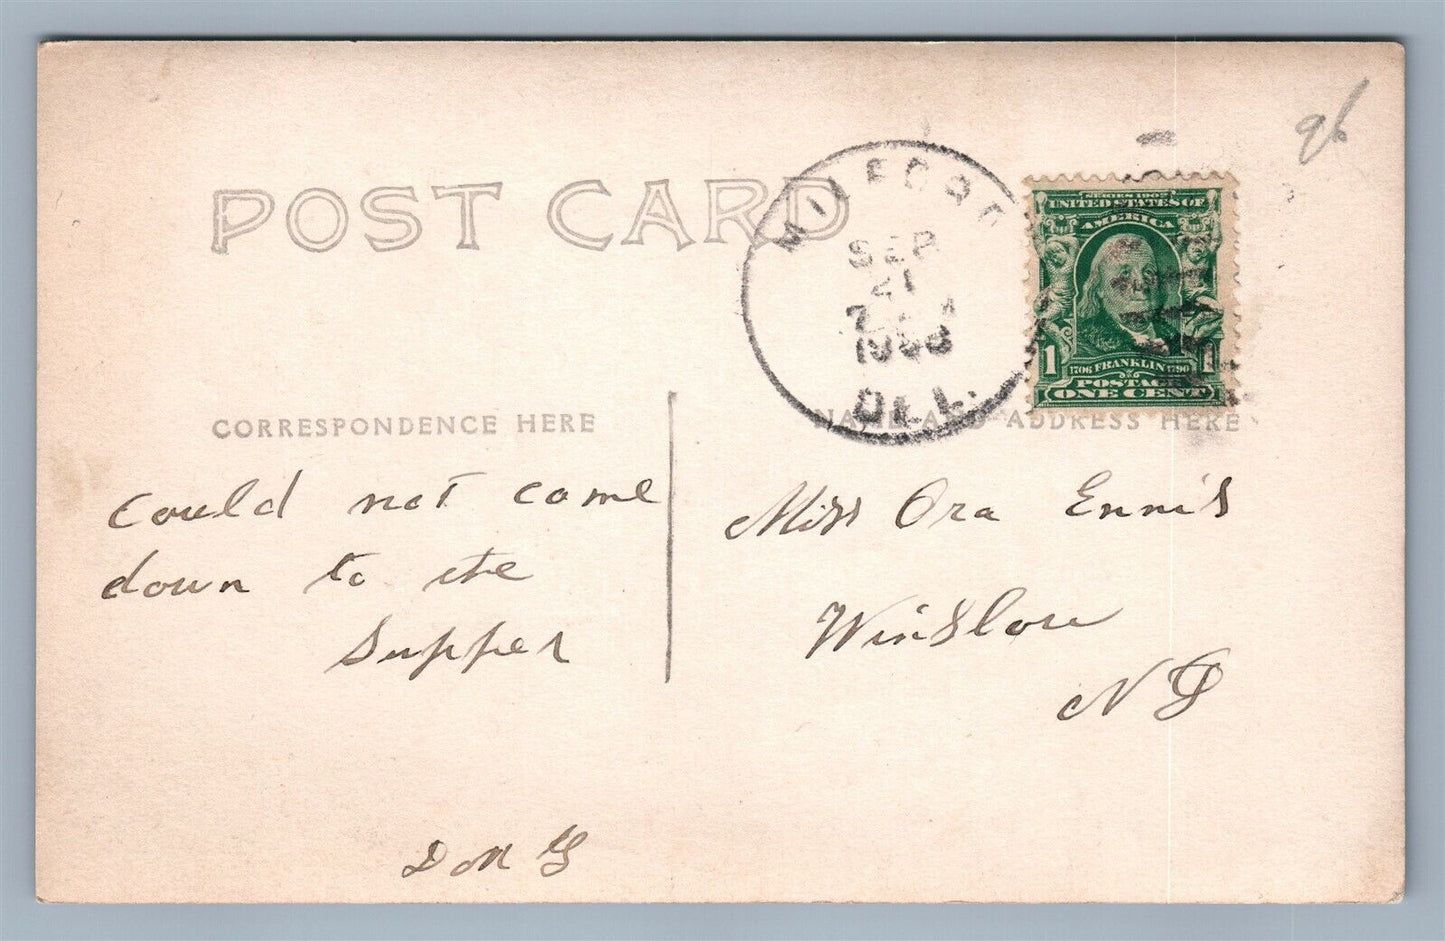 POST CARD
MILFORD
SEP
21
1908
DEL.
SERIES 1902
UNITED STATES OF
AMERICA
1 1
1706 FRANKLIN 1790
POSTAGE
ONE CENT
CORRESPONDENCE HERE
NAME AND ADDRESS HERE
Could not come
down to the
Supper
Don G
Miss Ora Ennis
Winslow
NJ